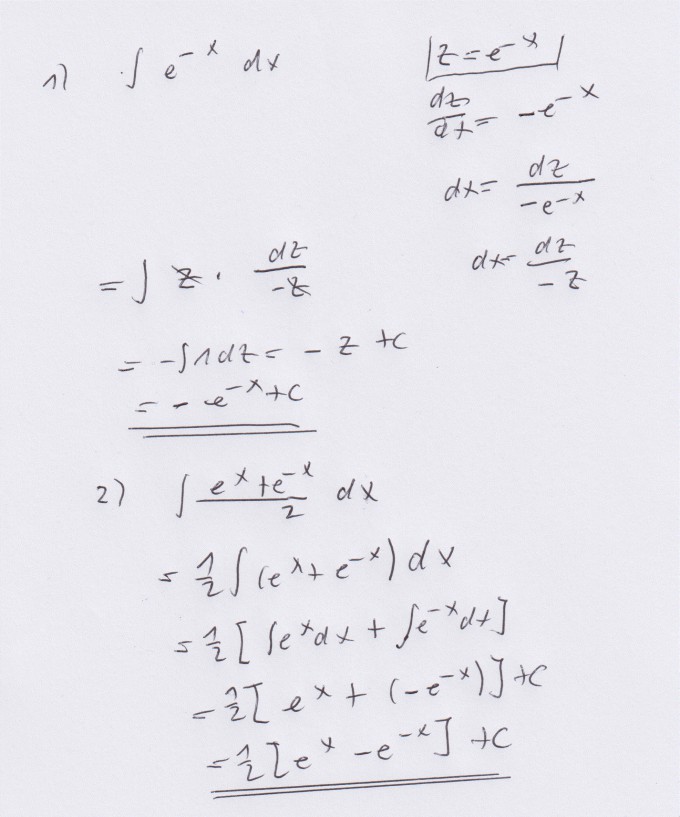 1) ∫ e^{-x} dx
|z = e^{-x}|
dz/dx = -e^{-x}
dx = dz/(-e^{-x})
dx = dz/(-z)
= ∫ z · dz/(-z)
= -∫1dz = -z +c
= -e^{-x}+c
2) ∫ (e^x+e^{-x})/2 dx
= 1/2 ∫(e^x+e^{-x}) dx
= 1/2 [∫e^x dx + ∫e^{-x}dx]
= 1/2 [e^x + (-e^{-x})] +c
= 1/2 [e^x -e^{-x}] +c